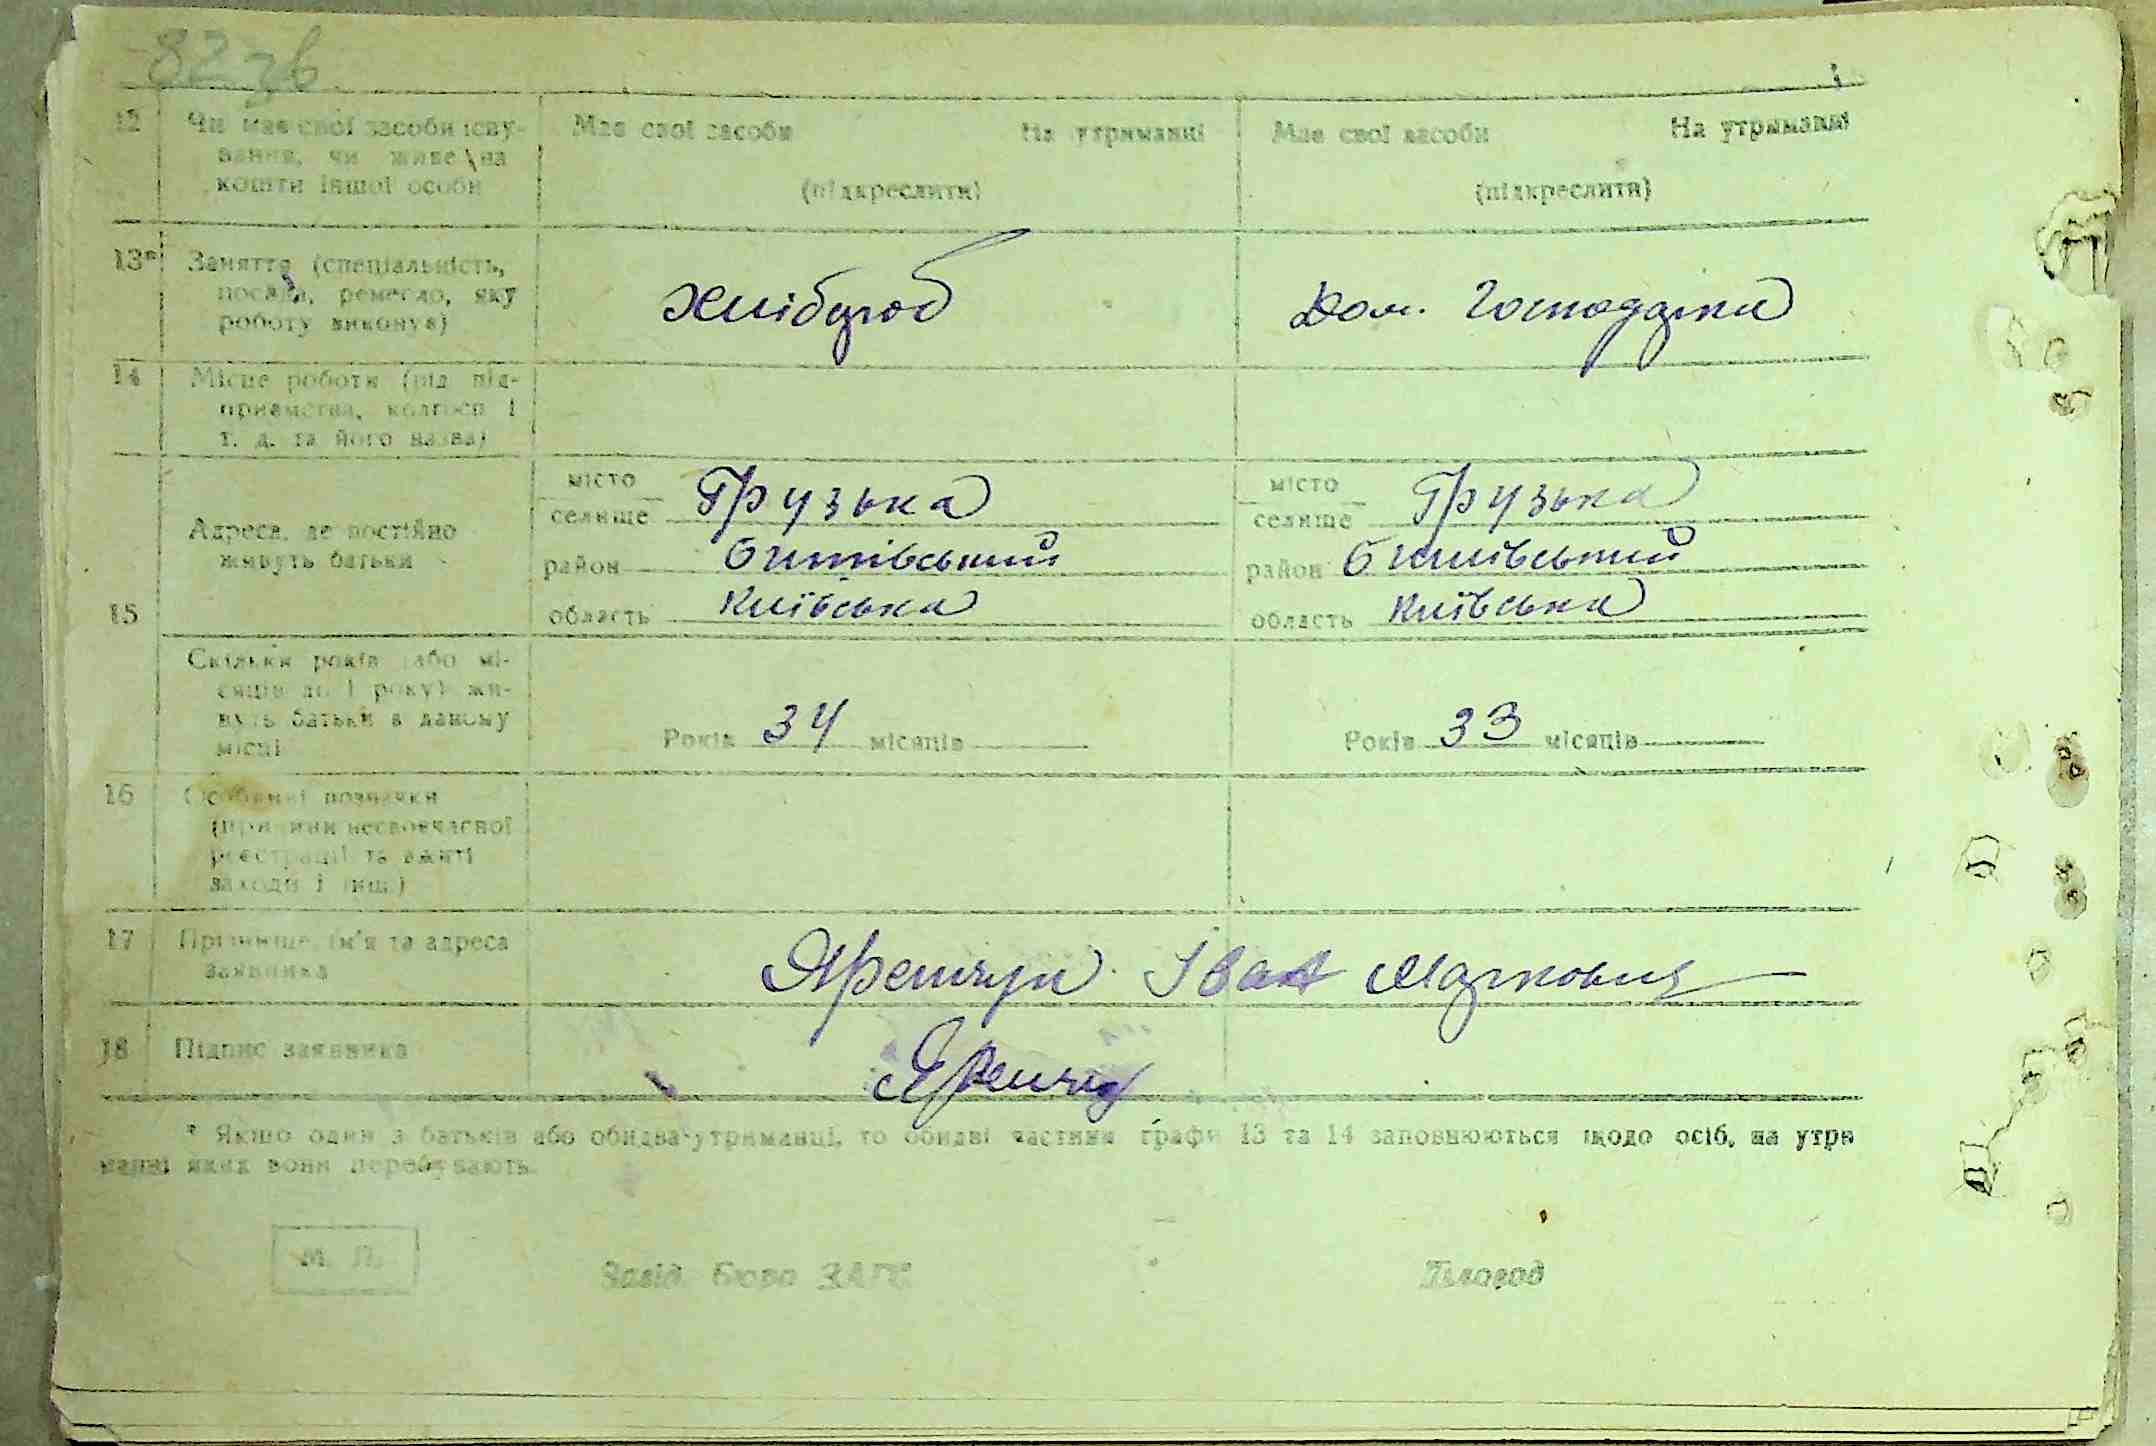 82 зв
12 Чи має свої засоби існу-
вання, чи живе на
кошти іншої особи
Має свої засоби На утриманні
(підкреслити)
Має свої засоби На утриманні
(підкреслити)
13* Заняття (спеціальність,
посада, ремесло, яку
роботу виконує)
Хлібороб
Дом. Господарка
14 Місце роботи (рід під-
приємства, колгосп і
т. д. та його назва)
15
Адреса, де постійно
живуть батьки
місто
селище Грузька
район Бишівський
область Київська
місто
селище Грузька
район Бишівський
область Київська
Скільки років (або мі-
сяців до 1 року) жи-
вуть батьки в даному
місці
Років 34 місяців
Років 33 місяців
16 Особливі позначки
(причини несвоєчасної
реєстрації та вжиті
заходи і інш.)
17 Прізвище, ім'я та адреса
заявника
Яремчук Іван Маркович
18 Підпис заявника
Яремчук
* Якщо один з батьків або обидва утриманці, то обидві частини графи 13 та 14 заповнюються щодо осіб, на утри
манні яких вони перебувають.
М. П.
Завід. Бюро ЗАГС
Діловод